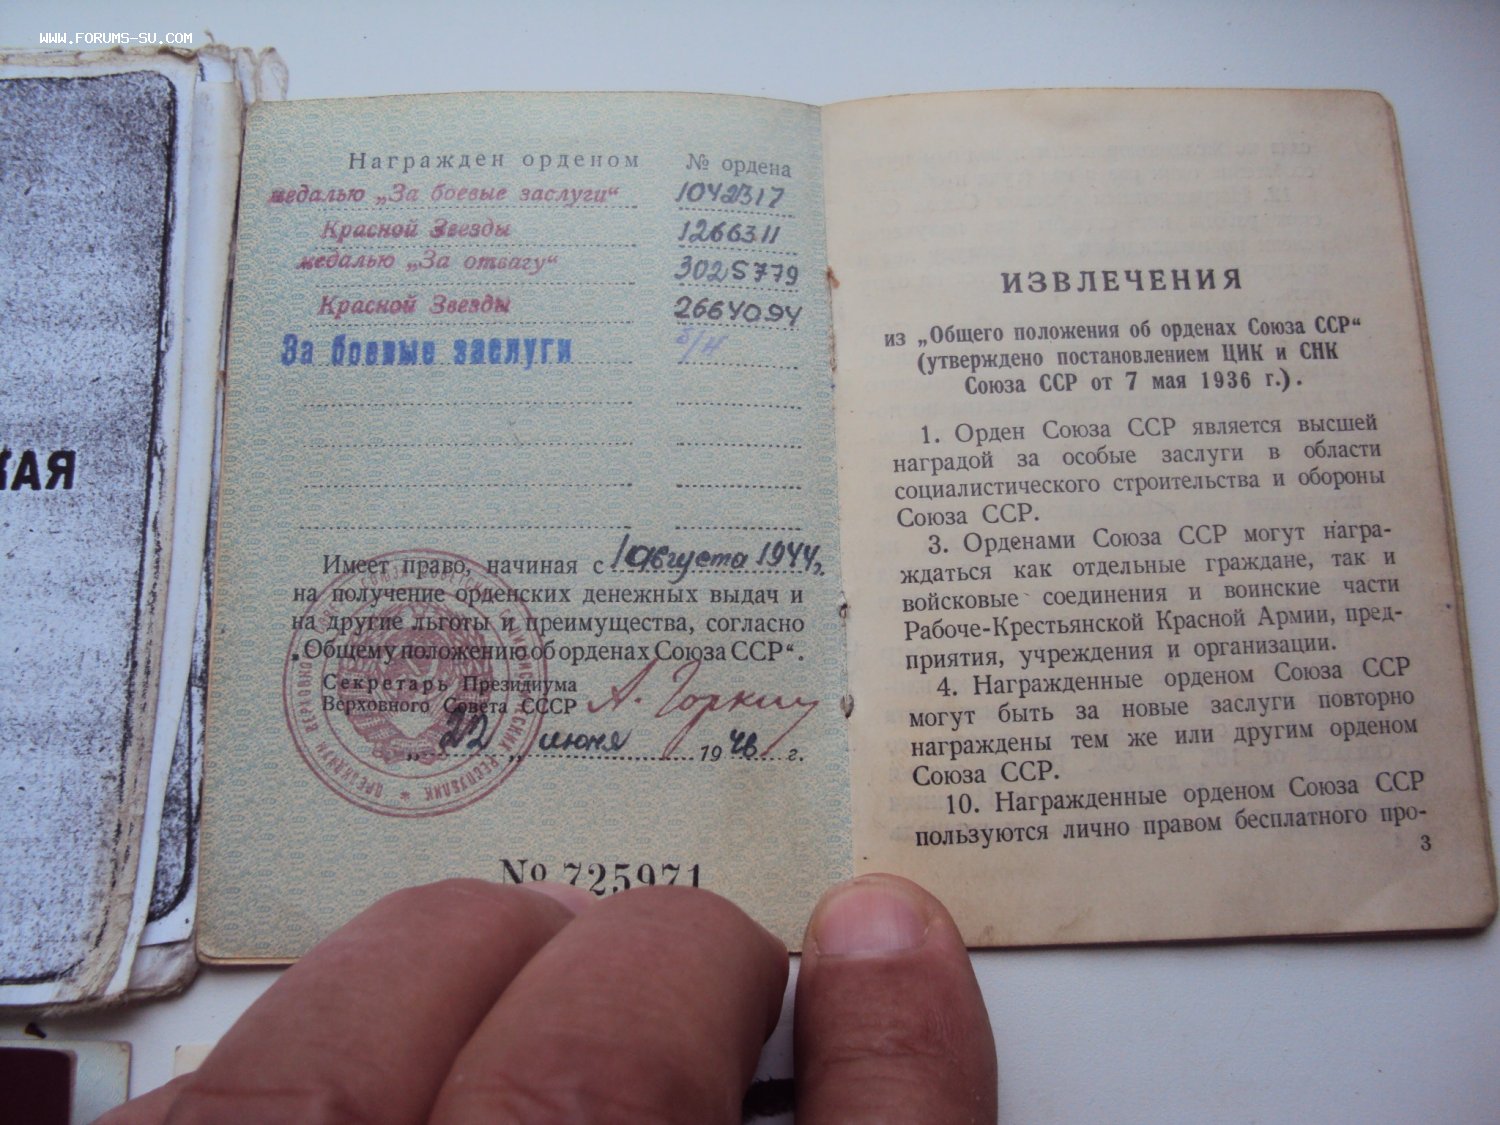 WWW.FORUMS-SU.COM
КАЯ
Награжден орденом № ордена
медалью „За боевые заслуги“ 1042317
Красной Звезды 1266311
медалью „За отвагу“ 3025779
Красной Звезды 2664094
За боевые заслуги б/н
Имеет право, начиная с 1 августа 1944 г.
на получение орденских денежных выдач и
на другие льготы и преимущества, согласно
„Общему положению об орденах Союза ССР“.
Секретарь Президиума
Верховного Совета СССР А. Горкин
„22„ июня 1948 г.
№ 725971
ИЗВЛЕЧЕНИЯ
из „Общего положения об орденах Союза ССР“
(утверждено постановлением ЦИК и СНК
Союза ССР от 7 мая 1936 г.).
1. Орден Союза ССР является высшей
наградой за особые заслуги в области
социалистического строительства и обороны
Союза ССР.
3. Орденами Союза ССР могут награ-
ждаться как отдельные граждане, так и
войсковые соединения и воинские части
Рабоче-Крестьянской Красной Армии, пред-
приятия, учреждения и организации.
4. Награжденные орденом Союза ССР
могут быть за новые заслуги повторно
награждены тем же или другим орденом
Союза ССР.
10. Награжденные орденом Союза ССР
пользуются лично правом бесплатного про-
3